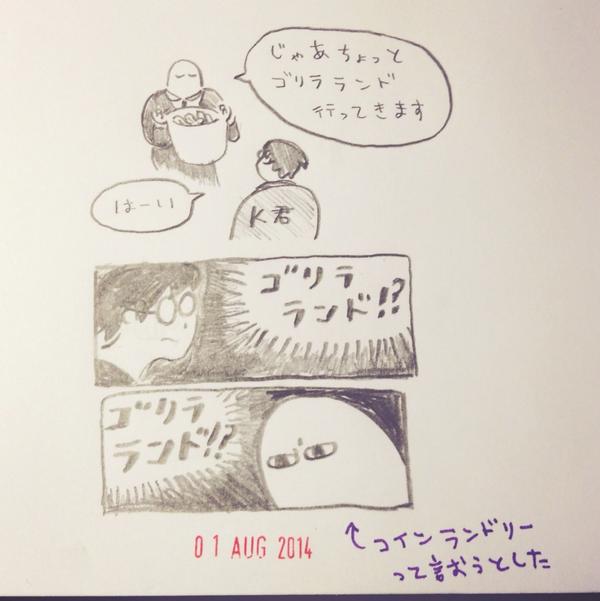 じゃあちょっと
ゴリラランド
行ってきます
はーい
K君
ゴリラ
ランド!?
ゴリラ
ランド!?
01 AUG 2014
↑コインランドリー
って言おうとした